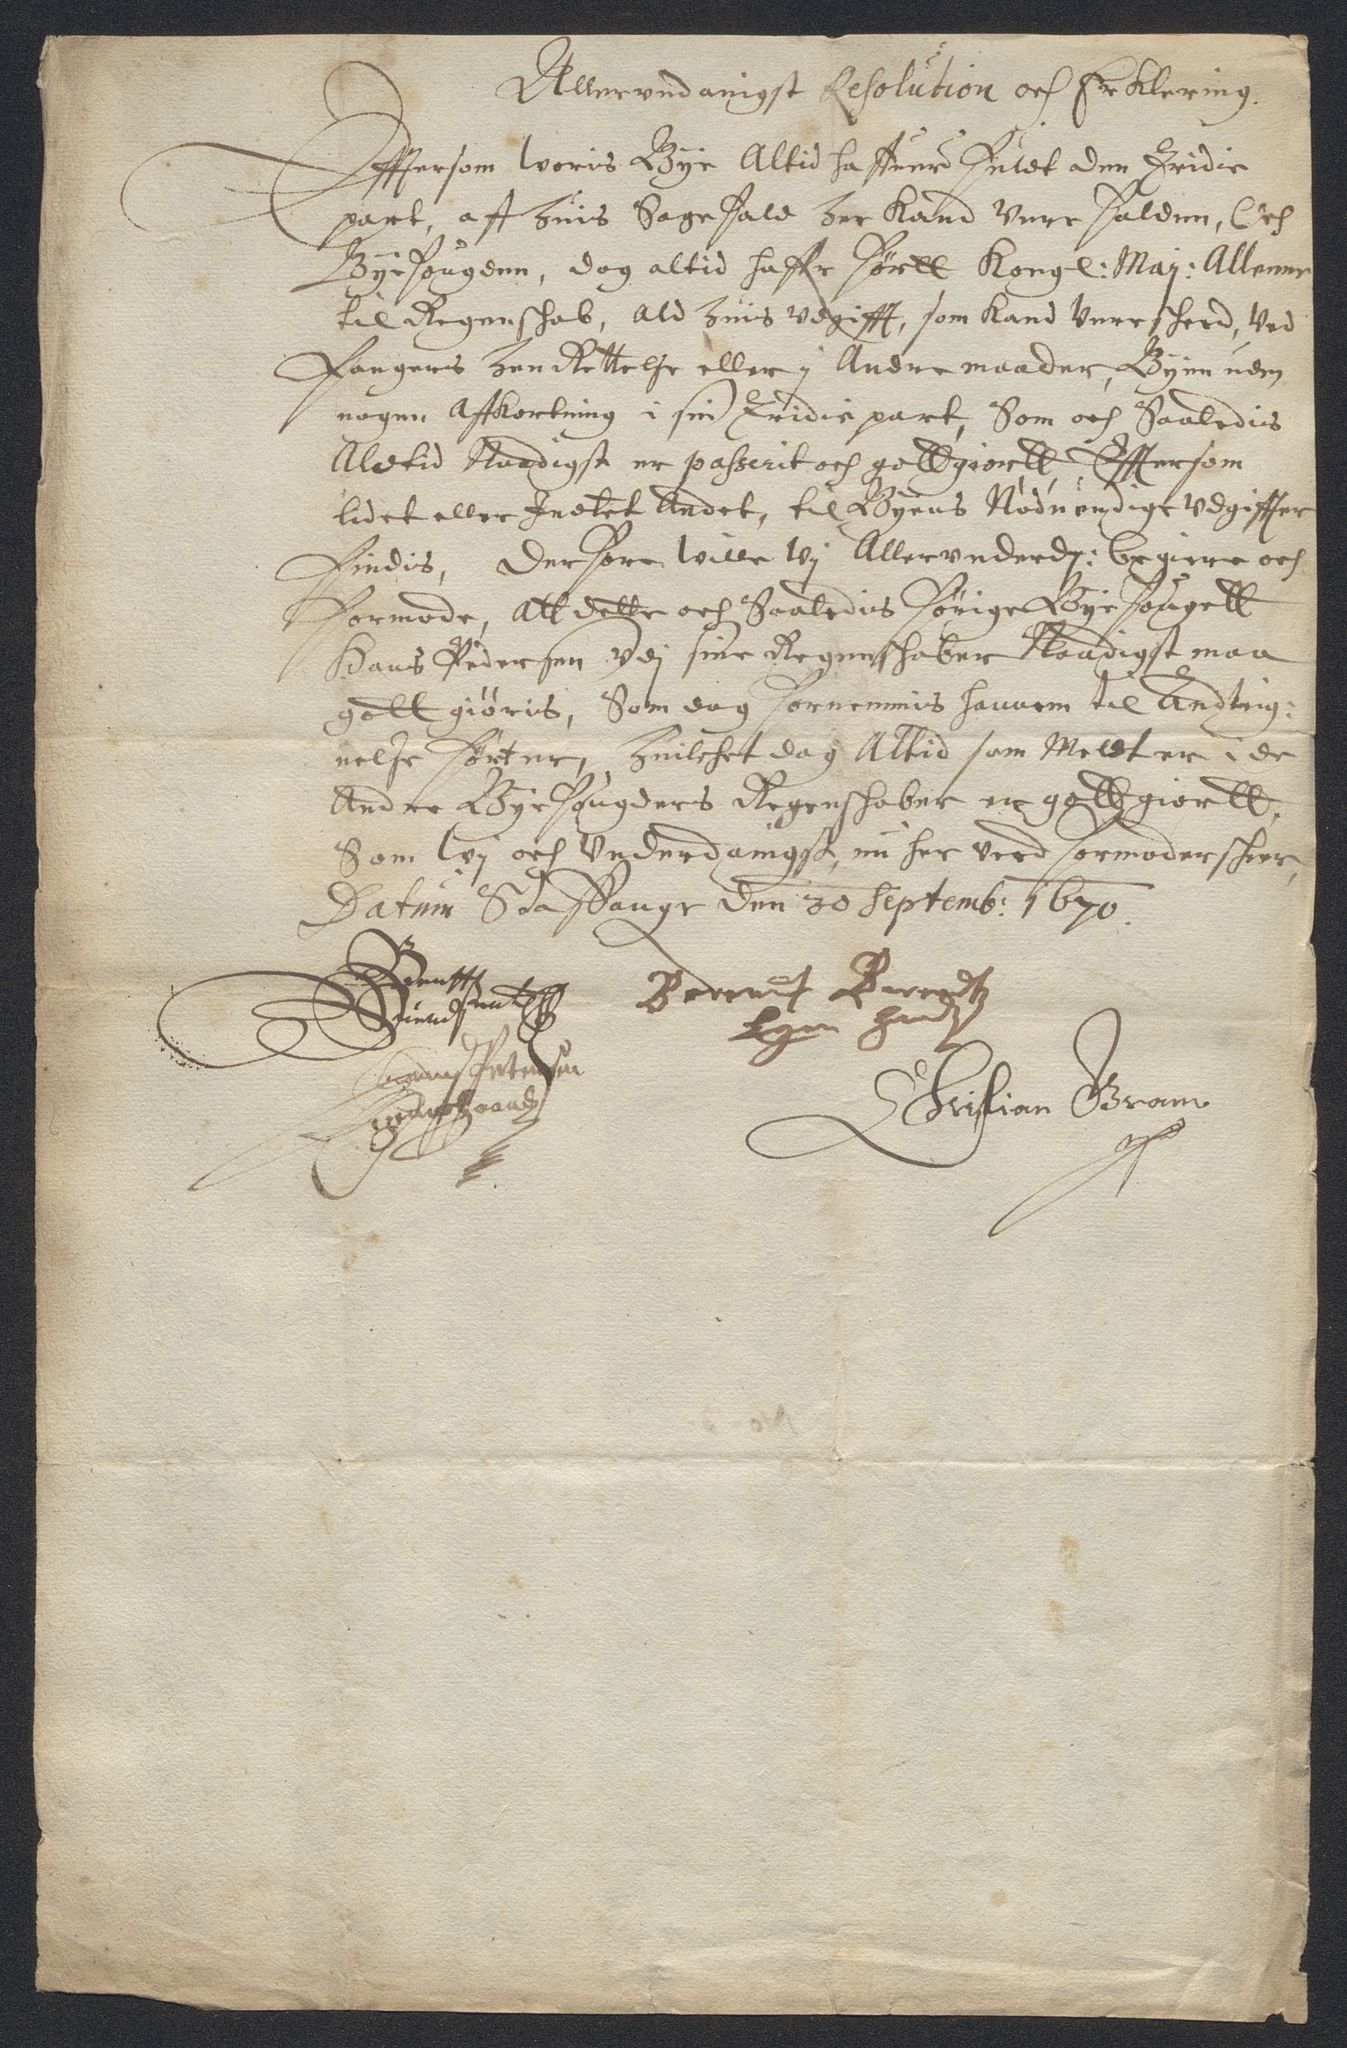 Allervndanigst Resolution och Erklering.
Effersom woris Bÿe Altid haffuer fuldt den Tridie
part, aff huis Sagefald her kand vere falden, Och
Bÿefougden, dog altid haffr førtt Kongl: Maÿ: Allenne
til Regenschab, Ald huis vdgifft, som kand vere scheed, ved
Fangers henRettelse eller j Andre maader, Bÿen uden
nogen Affkortning i sin Tridie part, Som och Saaledis
Aldtid Naadigst er passerit och gottgiortt, Effersom
lidet eller Indtet Andet, til Bÿens Nødvendige vdgiffter
Findis, Derfore wille wj Allervnderdj: begiere och
Formode, Att dette och Saaledis forige Bÿefougett
Hans Pedersen vdj sine Regenschaber Naadigst maa
gott giøris, Som dog fornemmis hannem til Andteig:
nelse førtur, huilchet dog Altid som Meldt er i de
Andre Bÿefougders Regenschaber er gottgiortt,
Som wj och vnderdanigst, nu her ved formoder scheer,
Datum Staffange den 30 Septemb: 1670.
Berendt Berendtz
Egen haand
Hans Petersen
Egen haand
Christian Bram